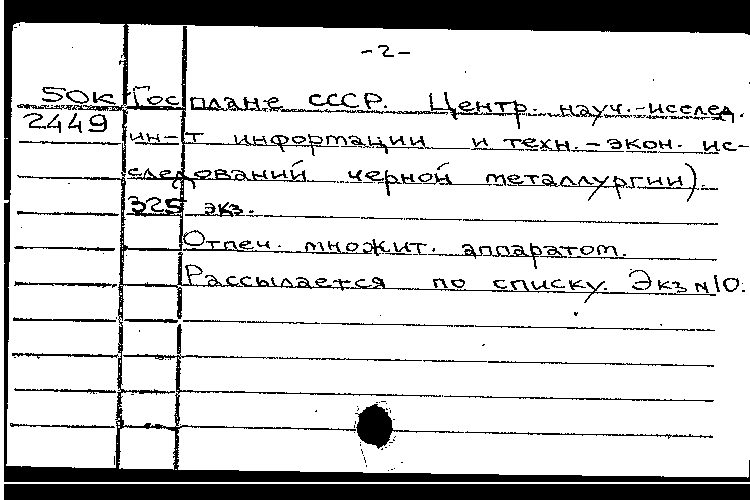 -2-
50к Госплане СССР. Центр. науч.-исслед.
2449 ин-т информации и техн.-экон. ис-
следований черной металлургии).
325 экз.
Отпеч. множит. аппаратом.
Рассылается по списку. Экз №10.